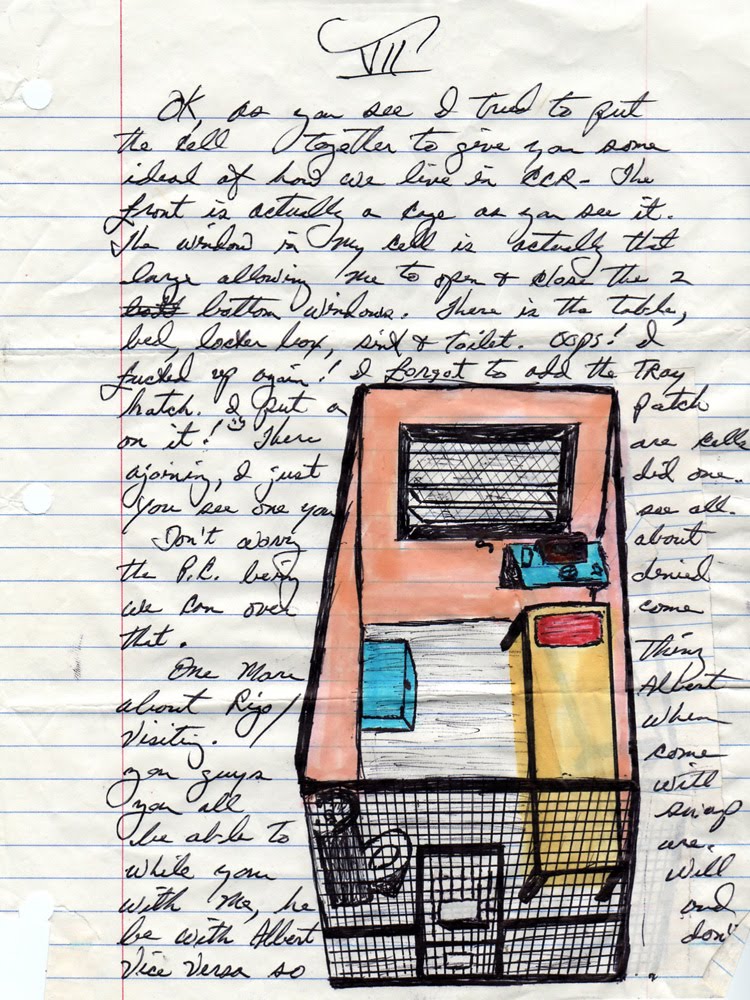 VII
OK, as you see I tried to put
the cell together to give you some
ideal of how we live in CCR- The
front is actually a cage as you see it.
The window in my cell is actually that
large allowing me to open & close the 2
bottom windows. There is the table,
bed, locker box, sink & toilet. Oops! I
fucked up again! I forgot to add the Tray
hatch. I put a patch
on it! There are cells
ajoining, I just did one..
You see one you see all.
Don't worry about
the P.C. being denied
we can over come
that.
One more thing
about Rigo/ Albert
Visiting. When
you guys come
you all with
be able to swap
while you are.
with me, he will
be with Albert and
Vice Versa so don't